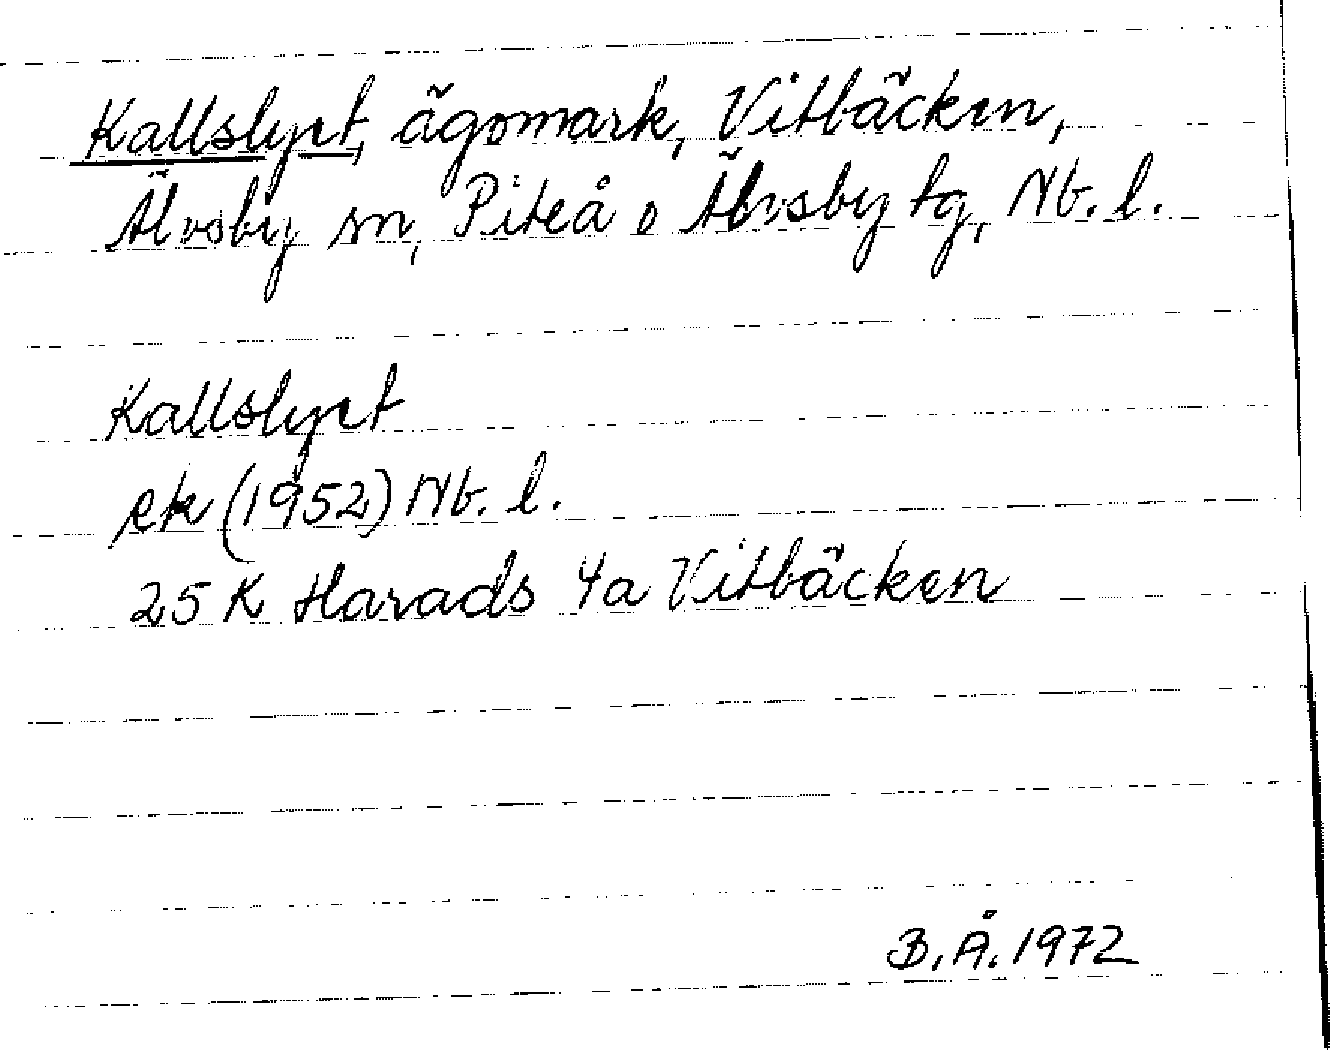 Kallslyet, ägomark, Vitbäcken,
Älvsby sn, Piteå o Älvsby tg, Nb. l.
Kallslyet
ek (1952) Nb. l.
25 K Harads 4a Vitbäcken
B. Å. 1972